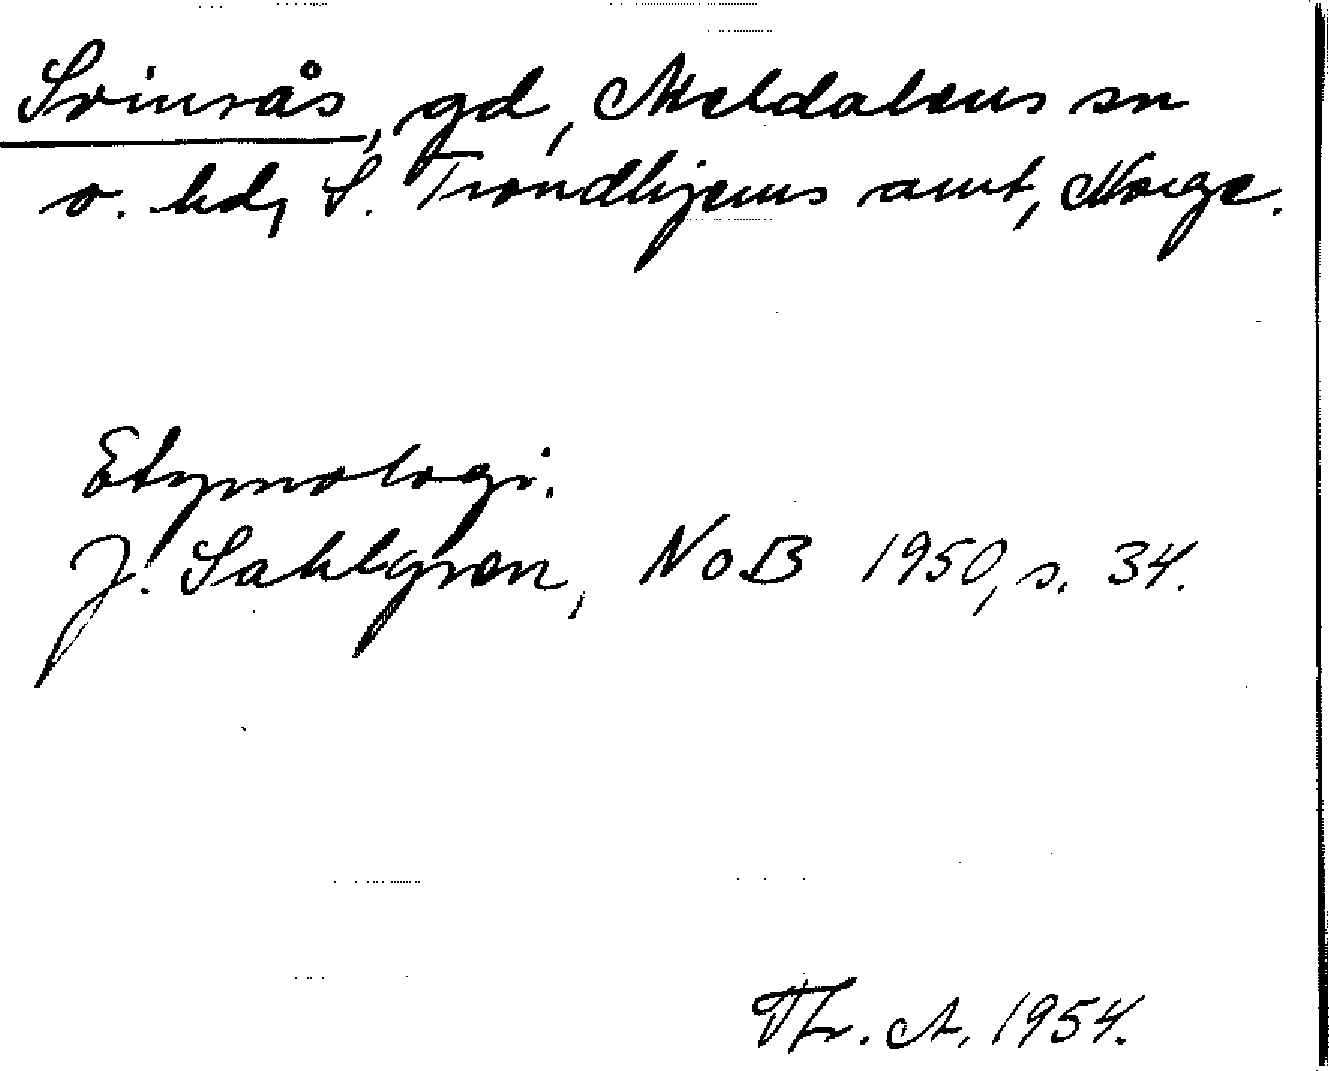 Svinsås, gd, Meldalens sn
o. hd, S. Trondhjems amt, Norge.
Etymologi.
J. Sahlgren, NoB 1950, s. 34.
Th. A. 1954.